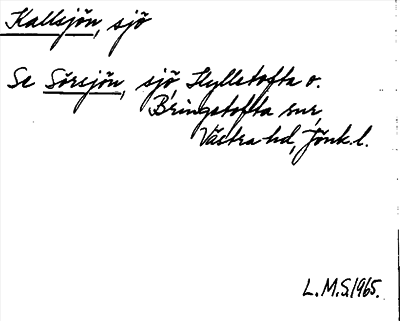 Kallsjön, sjö
Se Sörsjön, sjö, Hylletofta o.
Bringetofta snr,
Västra hd, Jönk. l.
L.M.S. 1965.